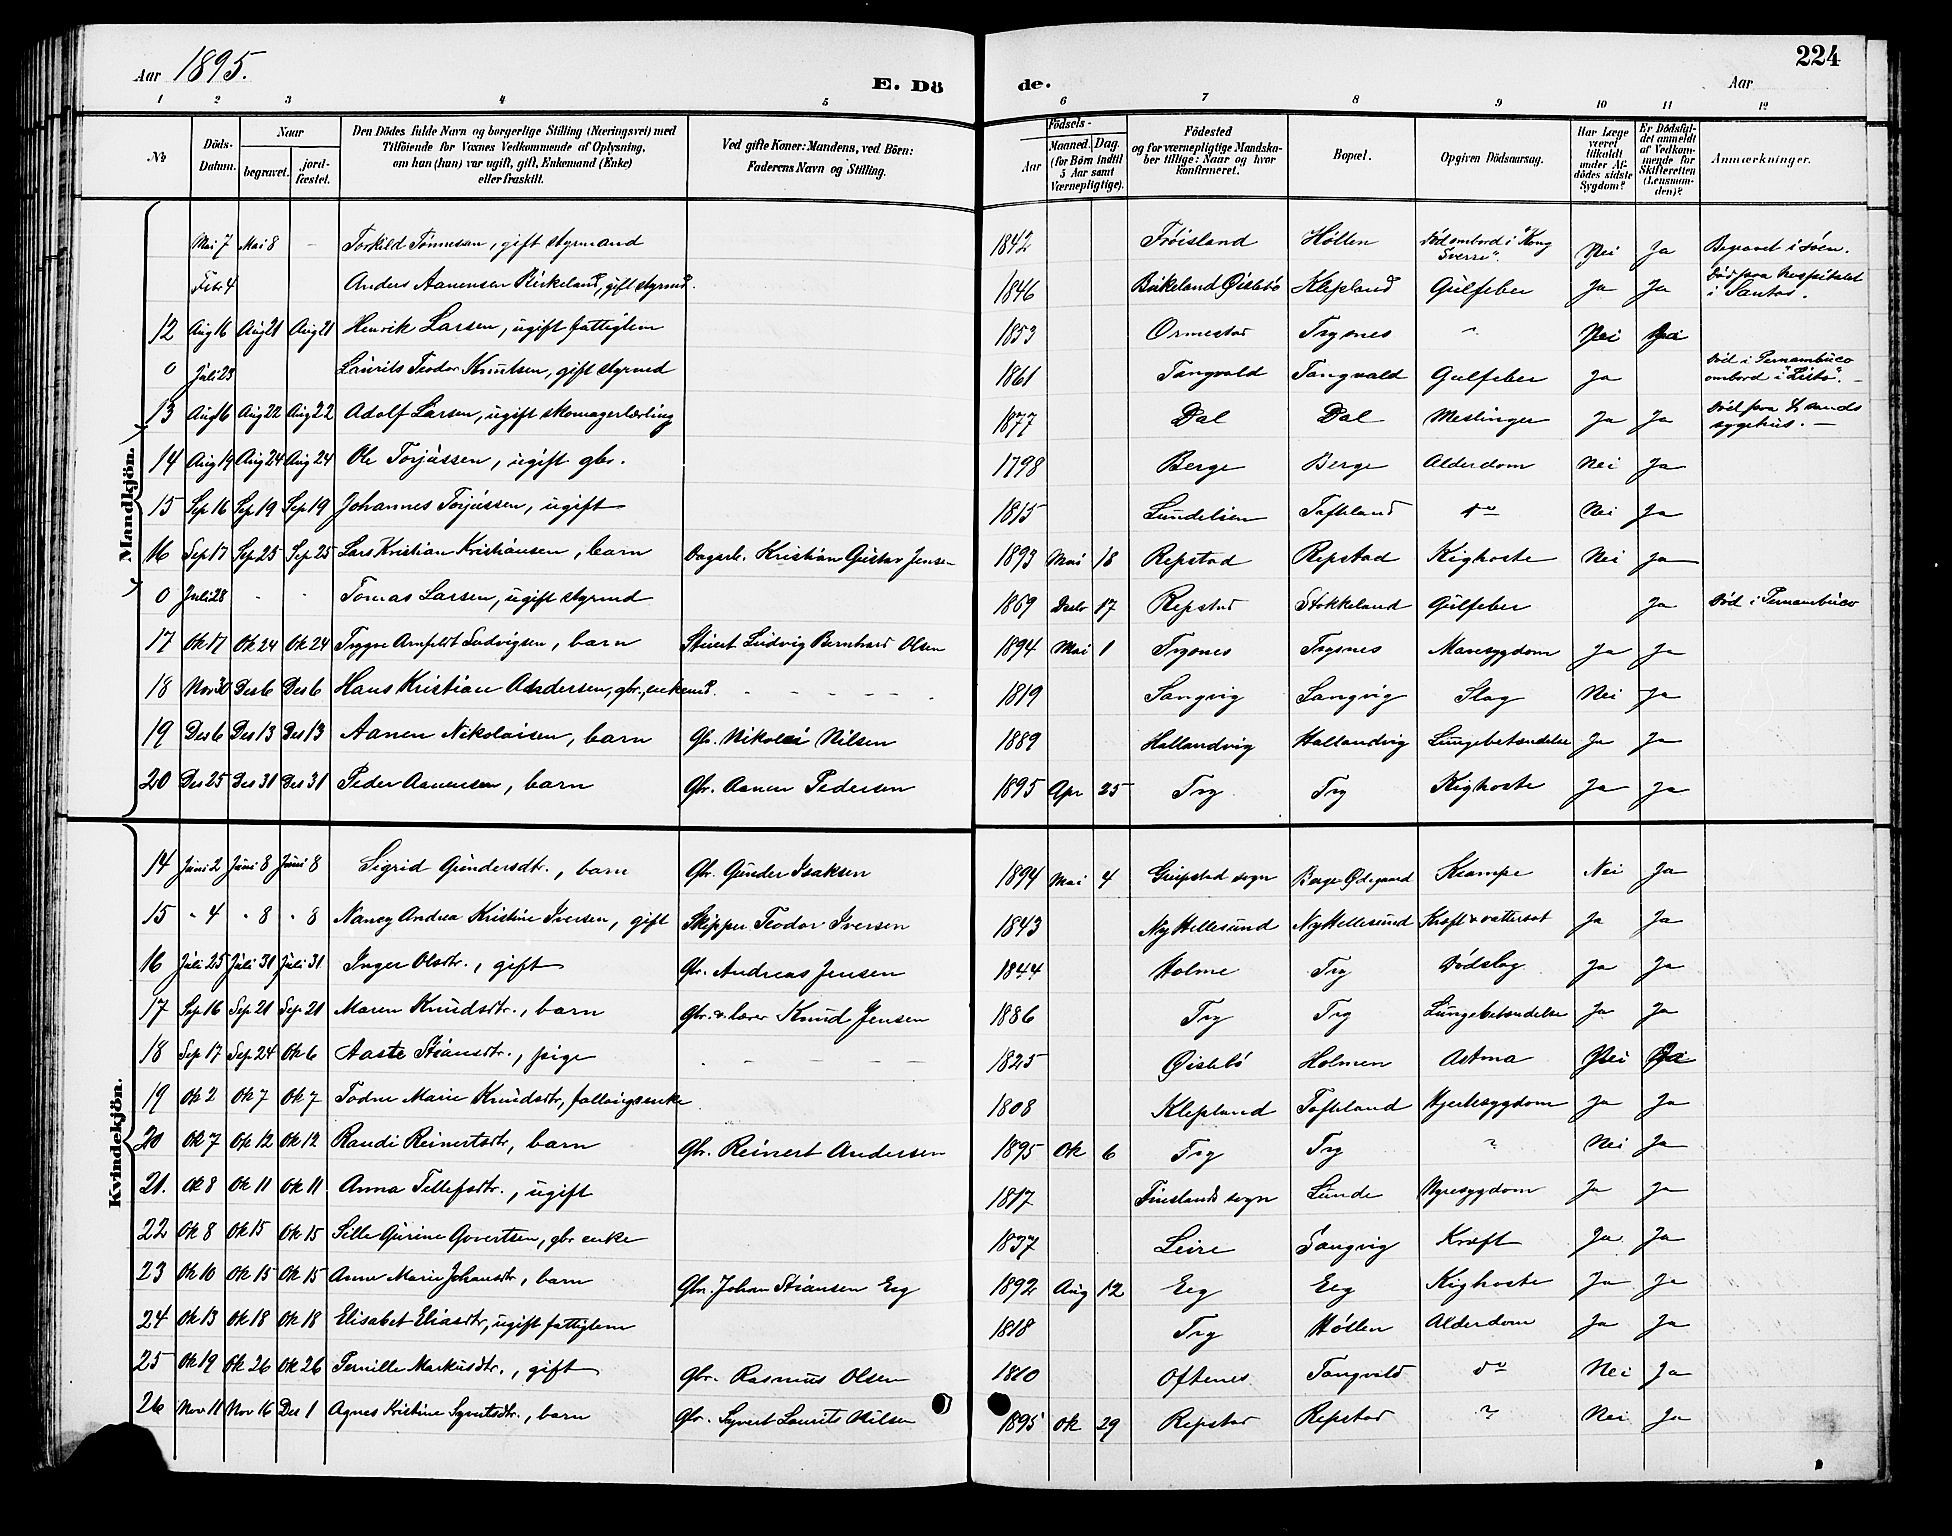 224
Aar 1895.
E. Dö de.
Aar
1 2 3 4 5 6 7 8 9 10 11 12
No
Döds-Datum.
Naar
begravet. jordfæstet.
Den Dödes fulde Navn og borgerlige Stilling (Næringsvei) med
Tilföiende for Voxnes Vedkommende af Oplysning,
om han (hun) var ugift, gift, Enkemand (Enke)
eller fraskilt.
Ved gifte Koner: Mandens, ved Börn:
Faderens Navn og Stilling.
Födsels-
Aar
Maaned. Dag.
(for Börn indtil
5 Aar samt
Værnepligtige).
Födested
og for værnepligtige Mandskaber tillige: Naar og hvor
konfirmeret.
Bopæl.
Opgiven Dödsaarsag.
Har Læge
været
tilkaldt
under Afdödes sidste
Sygdom?
Er Dödsfaldet anmeldt
af Vedkommende for
Skifteretten
(Lensmanden)?
Anmærkninger.
Mandkjön.
Mai 7 Mai 8 - Torkild Tönnesen, gift styrmand 1842 Fröisland Hölten Död ombord i "Kong Sverre". Nei Ja Begravet i söen.
Febr 4 Anders Aanensen Birkeland, gift styrmd. 1846 Birkeland Öislebö Klepland Gulfeber Ja Ja Död paa hospitalet i Santos.
12 Aug 16 Aug 21 Aug 21 Henrik Larsen, ugift fattiglem 1853 Ormestad Trysnes " Nei
0 Juli 23 Laurits Teodor Knutsen, gift styrmd 1861 Tangvald Tangvald Gulfeber Ja Död i Pernambuco ombord i "Lista".
13 Aug 16 Aug 22 Aug 22 Adolf Larsen, ugift skomagerlærling 1877 Dal Dal Meslinger Ja Ja Död paa Kr.sands sygehus.
14 Aug 19 Aug 24 Aug 24 Ole Torjussen, ugift gbr. 1798 Berge Berge Alderdom Nei Ja
15 Sep 16 Sep 19 Sep 19 Johannes Torjussen, ugift 1815 Lundelien Tofteland do Nei Ja
16 Sep 17 Sep 25 Sep 25 Lars Kristian Kristiansen, barn Dagarb. Kristian Gustav Jensen 1893 Mai 18 Repstad Repstad Kighoste Nei Ja
0 Juli 28 - - Tomas Larsen, ugift styrmd 1869 Desbr 17 Repstad Stokkeland Gulfeber Ja Död i Pernambuco
17 Ok 17 Ok 24 Ok 24 Trygve Arnfeldt Ludvigsen, barn Stuert Ludvig Bernhard Olsen 1894 Mai 1 Trysnes Trysnes Mavesygdom Ja Ja
18 Nov 30 Des 6 Des 6 Hans Kristian Andersen, gbr., enkemd. - - - - 1819 Langvig Langvig Slag Nei Ja
19 Des 6 Des 13 Des 13 Aanen Nikolaisen, barn Gbr. Nikolai Nilsen 1889 Hallandvig Hallandvig Lungebetændelse Ja Ja
20 Des 25 Des 31 Des 31 Peder Aanensen, barn Gbr. Aanen Pedersen 1895 Apr 25 Try Try Kighoste Ja Ja
Kvindekjön.
14 Juni 2 Juni 8 Juni 8 Sigrid Gundersdtr., barn Gbr. Gunder Isaksen 1894 Mai 4 Greipstad sogn Berge Ödegaard Krampe Nei Ja
15 " 4 " 8 " 8 Nancy Andrea Kristine Iversen, gift Skipper Teodor Iversen 1843 Ny Hellesund Ny Hellesund Kræft & vattersot Ja Ja
16 Juli 25 Juli 31 Juli 31 Inger Olsdtr., gift Gbr. Andreas Jensen 1844 Holme Try Dödslag Ja Ja
17 Sep 16 Sep 21 Sep 21 Maren Knudsdtr., barn Gbr. & lærer Knud Jensen 1886 Try Try Lungebetændelse Ja Ja
18 Sep 17 Sep 24 Ok 6 Aaste Stiansdtr., pige - - - - 1825 Öislebö Holmen Astma Nei
19 Ok 2 Ok 7 Ok 7 Todne Marie Knudsdtr, fattigenke 1808 Klepland Tofteland Hjertesygdom Ja Ja
20 Ok 7 Ok 12 Ok 12 Randi Reinertsdtr, barn Gbr. Reinert Andersen 1895 Ok 6 Try Try " Nei Ja
21. ok 8 Ok 11 Ok 11 Anna Tellefsdtr., ugift 1817 Finslands sogn Lunde Nyresygdom Ja Ja
22 Ok 8 Ok 15 Ok 15 Sille Gurine Govertsen, gbr enke 1837 Leire Langvig Kræft Ja Ja
23 Ok 10 Ok 15 Ok 15 Anne Marie Johansdtr, barn Gbr. Johan Stiansen Eeg 1892 Aug 12 Eeg Eeg Kighoste Ja Ja
24 Ok 13 Ok 18 Ok 18 Elisabet Eliasdtr, ugift fattiglem 1818 Try Höllen Alderdom Ja Ja
25 Ok 19 Ok 26 Ok 26 Pernille Markusdtr., gift Gbr. Rasmus Olsen 1810 Oftenes Tangvald do Nei Ja
26 Nov 11 Nov 16 Des 1 Agnes Kristine Syvertsdtr., barn Gbr. Syvert Laurits Nilsen 1895 Ok 29 Repstad Repstad " Nei Ja